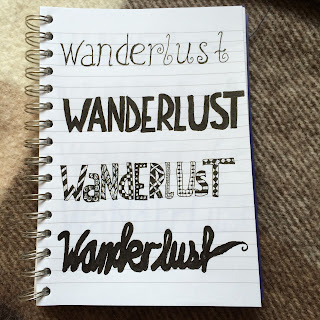 wanderlust
WANDERLUST
WaNdERLUsT
Wanderlust